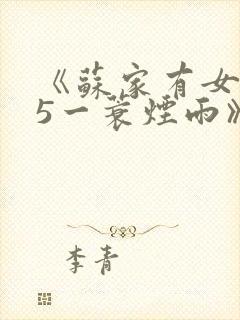 《蘇家有女
5一蓑煙雨》
李青